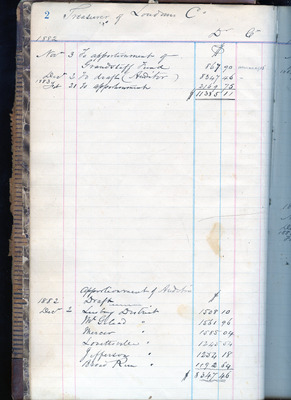 2 Treasurer of Loudoun Co
Dr Cr
1882
Nov 3 To apportionment of $
Grandstaff Fund 867 90
Dec 3 To draft (Auditor) 8347 46
1883
Feb 21 To apportionment 2169 75
$ 11385 11
Apportionment of Auditor
1882 Draft $
Dec 2 Lesburg District 1528 10
Mt Gilead " 1561 96
Mercer " 1585 04
Lovettsville "
Jefferson " 1254 18
Broad Run " 1192 64
$ 8347 46